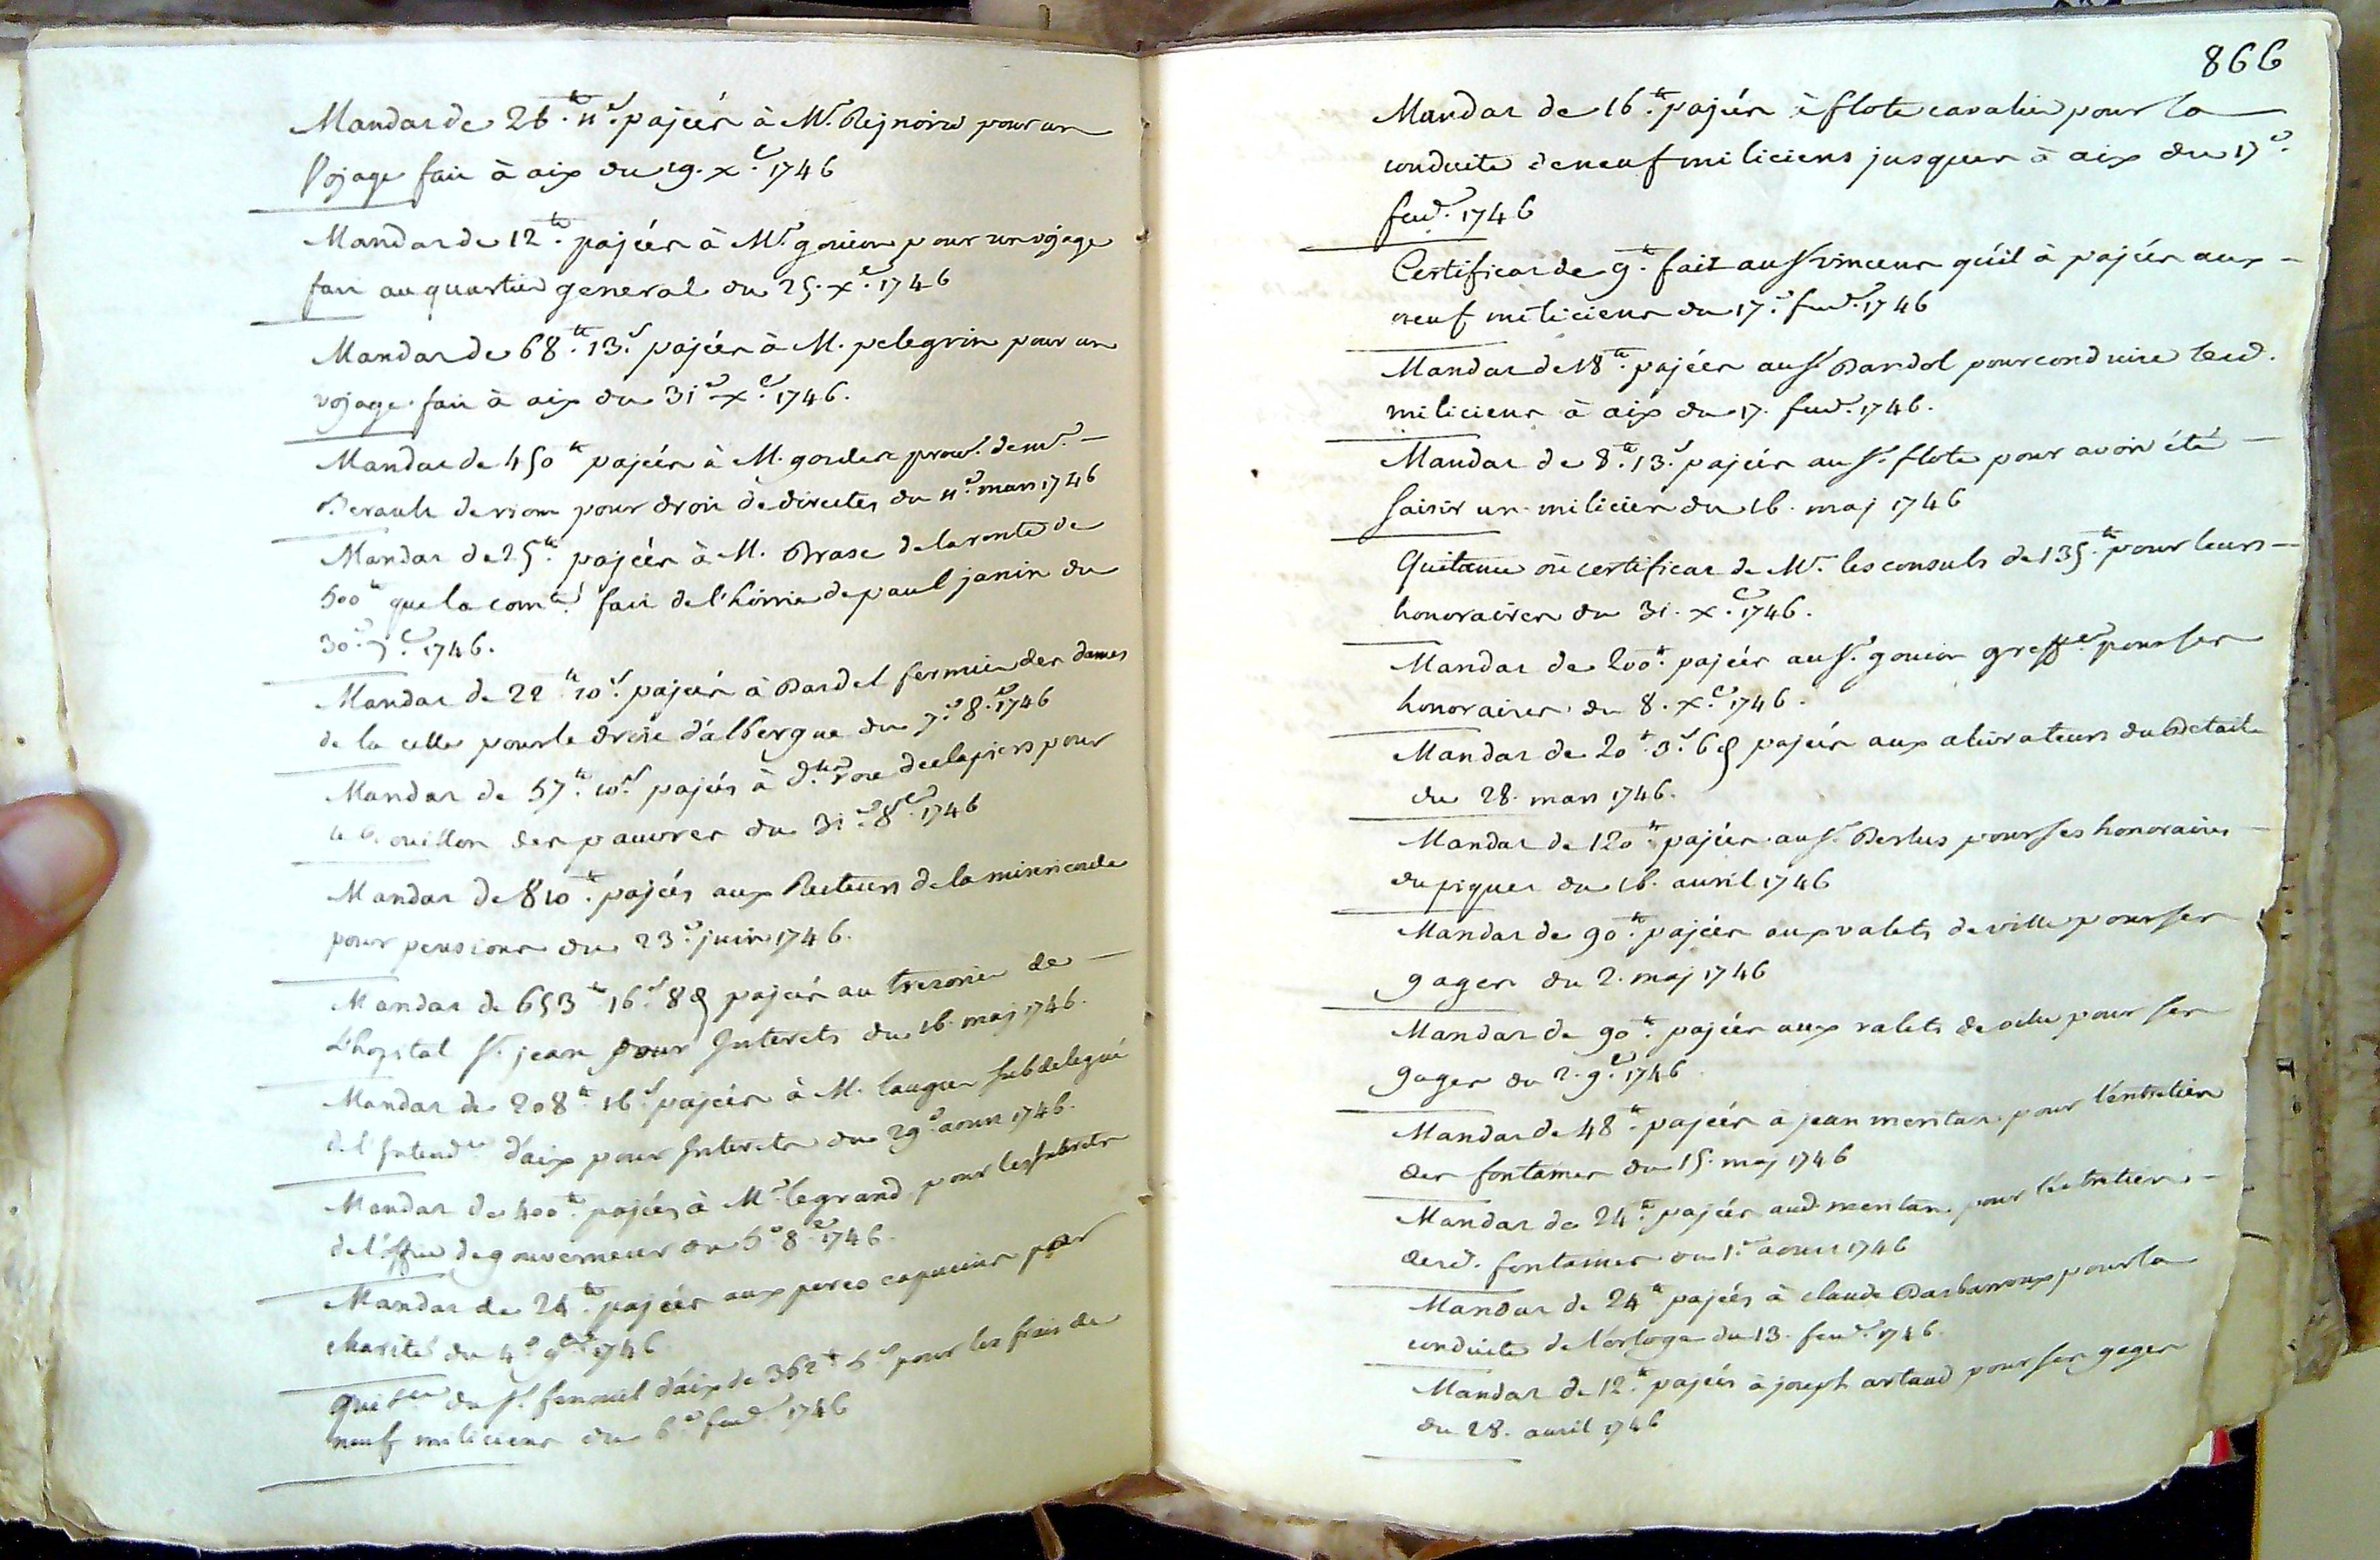 Mandat de 26.# 11.s pajées à Mr. Rejnoird pour un
Vojage fait à aix du 19. xe. 1746
Mandat de 12.# pajées à Mr. goujon pour un vojage
fait au quartier general du 25. xe. 1746
Mandat de 68.# 13.s pajées à M. pelegrin pour un
vojage fait à aix du 31e xe. 1746.
Mandat de 450# pajées à M. gordes procr. de mr.
Berault de riom pour droit de directes du 11e mars 1746
Mandat de 25.# pajées à M. Brase de la rente de
500# que la comté. fait de l'hoirie de paul janin du
30e. 7e. 1746.
Mandat de 22.# 10s. pajées à Dardel fermier des dames
de la celle pour le droit d'albergue du 7e. 8e. 1746
Mandat de 57.# 10s. pajés à dlle roze declapiers pour
le bouillon des pauvres du 31e 8e. 1746
Mandat de 810.# pajés aux Recteurs de la misericorde
pour pensions du 23e. juin 1746.
Mandat de 653# 16s. 8d pajées au trezorier de
L'hopital St. jean pour Interets du 16. maj 1746.
Mandat de 208# 16s. pajées à M. laugier subdelegué
de l'Intendce d'aix pour Interets du 29e aoust 1746.
Mandat de 400.# pajées à Mr legrand pour les Interets
de l'office de gouverneur du 5e 8e 1746.
Mandat de 24.# pajées aux peres capucins par
charité du 4e 9e 1746
Quitce du Sr. fenouil d'aix de 362# 5s pour les frais de
neuf miliciens du 6e fevr. 1746
866
Mandat de 16.# pajées à flote cavalier pour la
conduite de neuf miliciens jusques à aix du 17e.
fevr. 1746
Certificat de 9.# fait au Sr vincens qu'il à pajées aux
neuf miliciens du 17e. fevr. 1746
Mandat de 18.# pajées au Sr Dardol pour conduire lesd.
miliciens à aix du 17. fevr. 1746.
Mandat de 8.# 13s. pajées au Sr. flote pour avoir été
saisir un milicien du 16. maj 1746
Quitance ou certificat de Mrs. les consuls de 135.# pour leurs
honoraires du 31. xe. 1746.
Mandat de 200.# pajées au Sr. goujon greffer pour ses
honoraires du 8. xe. 1746.
Mandat de 20.# 3s. 6d pajées aux alivrateurs du Betail
du 28. mars 1746.
Mandat de 120# pajées au Sr. Berlus pour ses honoraires
du piquet du 16. auril 1746
Mandat de 90.# pajées aux valets de ville pour ses
gages du 2. maj 1746
Mandat de 90.# pajées aux valets de ville pour ses
gages du 2. 9e. 1746
Mandat de 48.# pajées à jean meritan pour l'entretien
des fontaines du 15. maj 1746
Mandat de 24.# pajées aud. meritan pour l'entretien
desd. fontaines du 1er aoust 1746
Mandat de 24# pajées à claude Barbarroux pour la
conduite de l'orloge du 13. fevr. 1746.
Mandat de 12.# pajées à joseph artaud pour ses gages
du 28. auril 1746